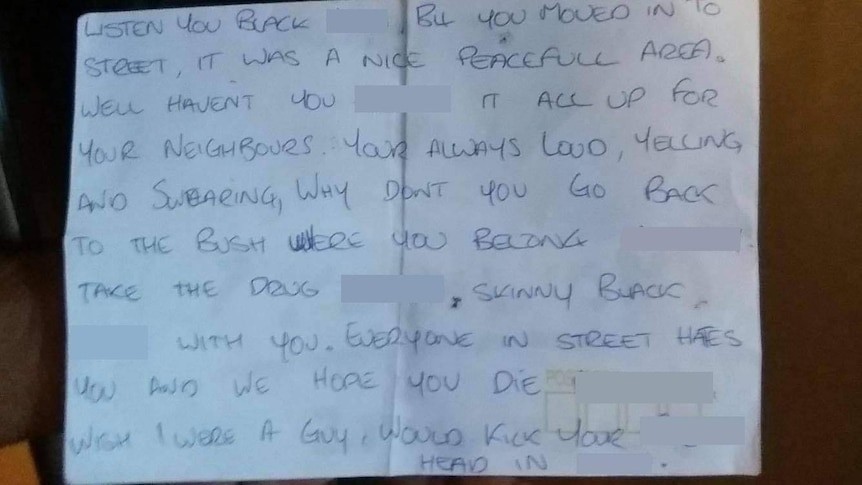 LISTEN YOU BLACK , B4 YOU MOVED IN TO
STREET, IT WAS A NICE PEACEFULL AREA.
WELL HAVENT YOU IT ALL UP FOR
YOUR NEIGHBOURS. YOUR ALWAYS LOUD, YELLING
AND SWEARING, WHY DONT YOU GO BACK
TO THE BUSH WERE YOU BELONG
TAKE THE DRUG . SKINNY BLACK
WITH YOU. EVERYONE IN STREET HATES
YOU AND WE HOPE YOU DIE
WISH I WERE A GUY, WOULD KICK YOUR
HEAD IN .